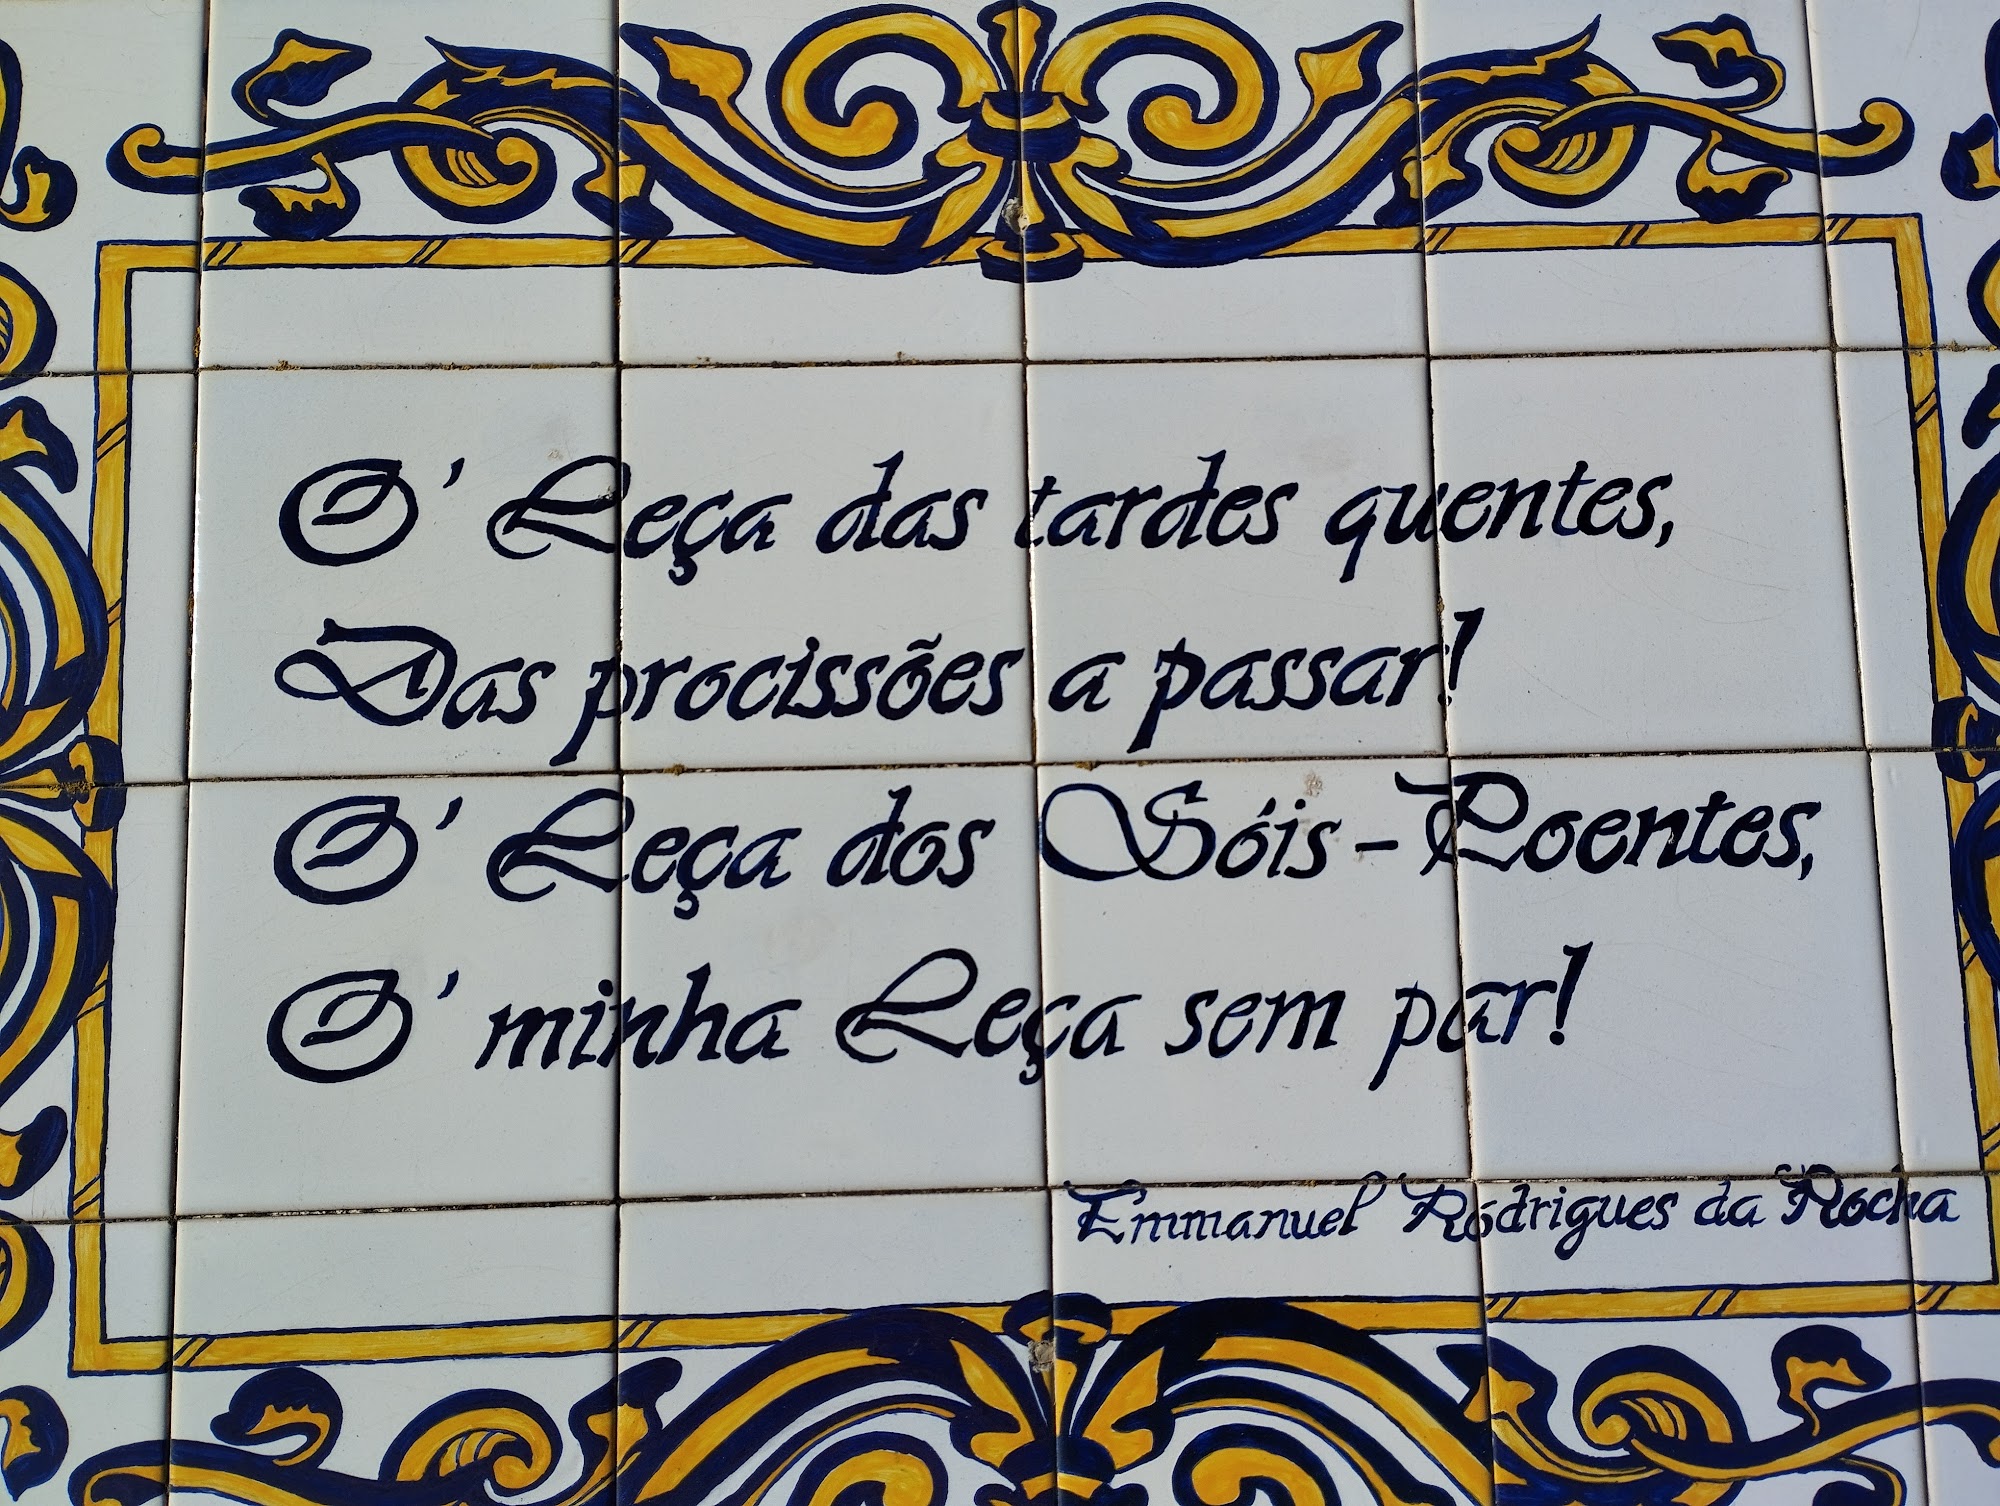 O' Leça das tardes quentes,
Das procissões a passar!
O' Leça dos Sóis-Poentes,
O' minha Leça sem par!
Emmanuel Rodrigues da Rocha